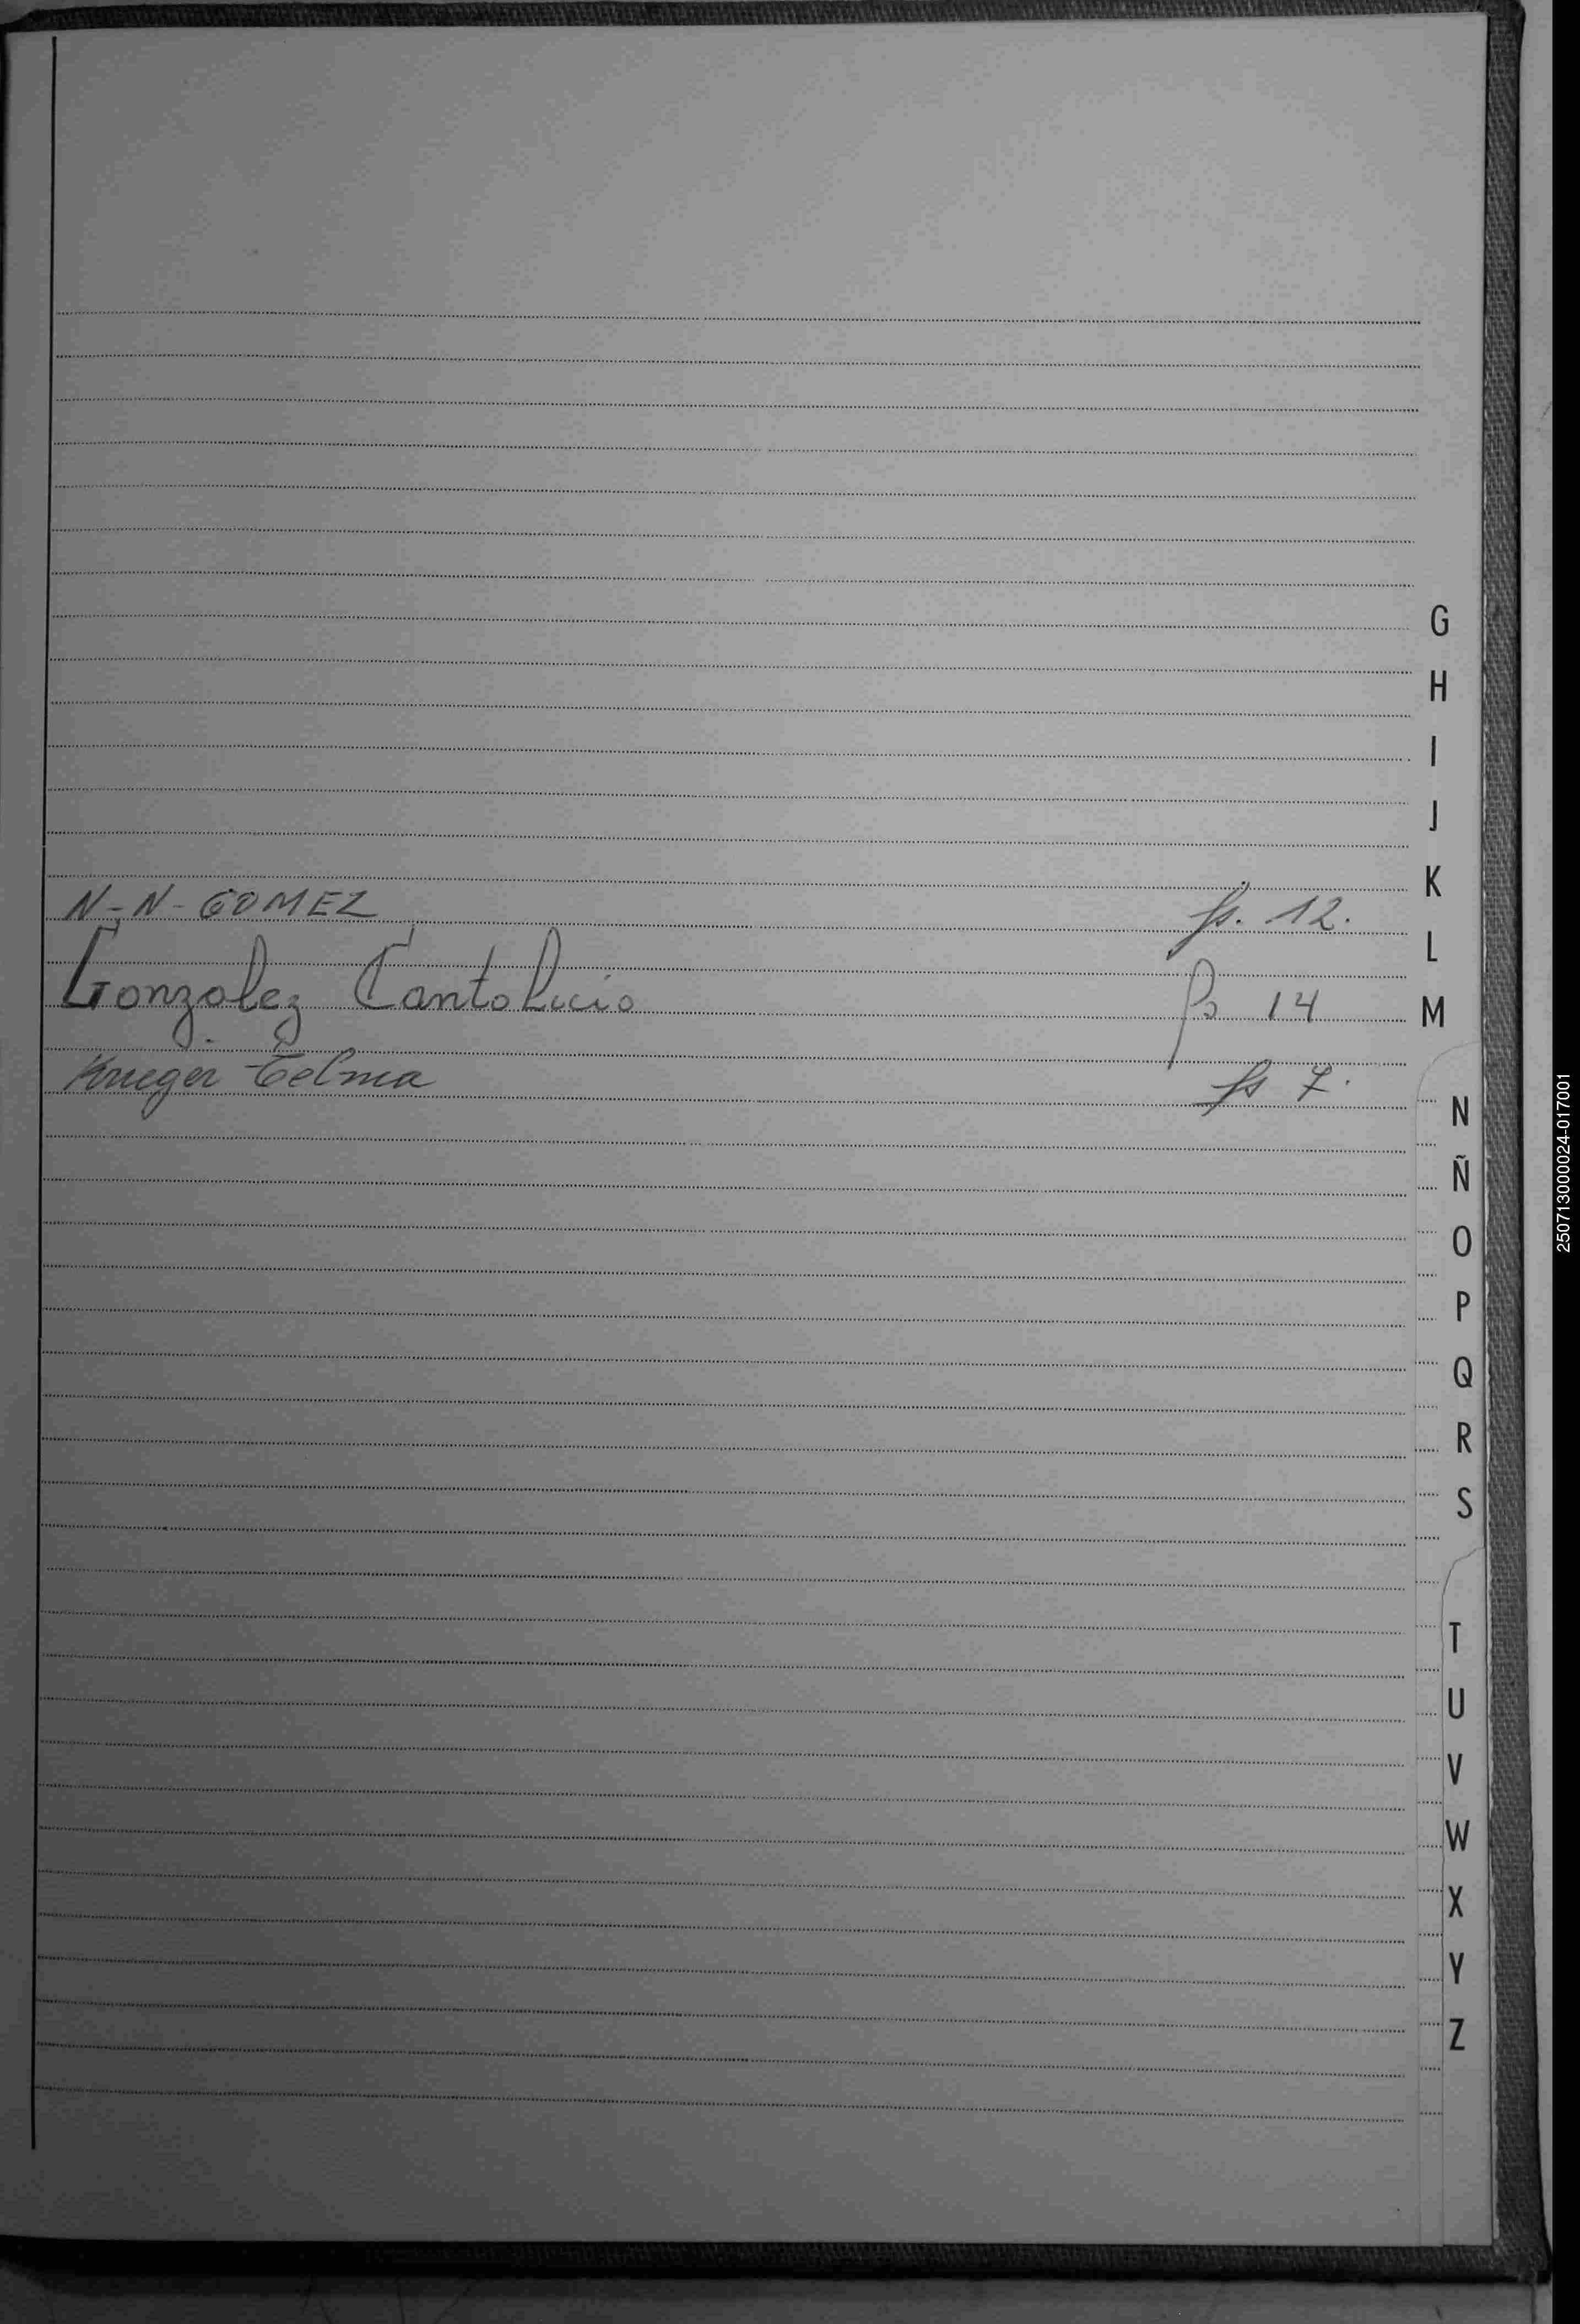 N-N-GOMEZ fs. 12.
Gonzalez Canto Lucio fs 14
Krueger Telma fs 7.
G
H
I
J
K
L
M
N
Ñ
O
P
Q
R
S
T
U
V
W
X
Y
Z
250713000024-017001